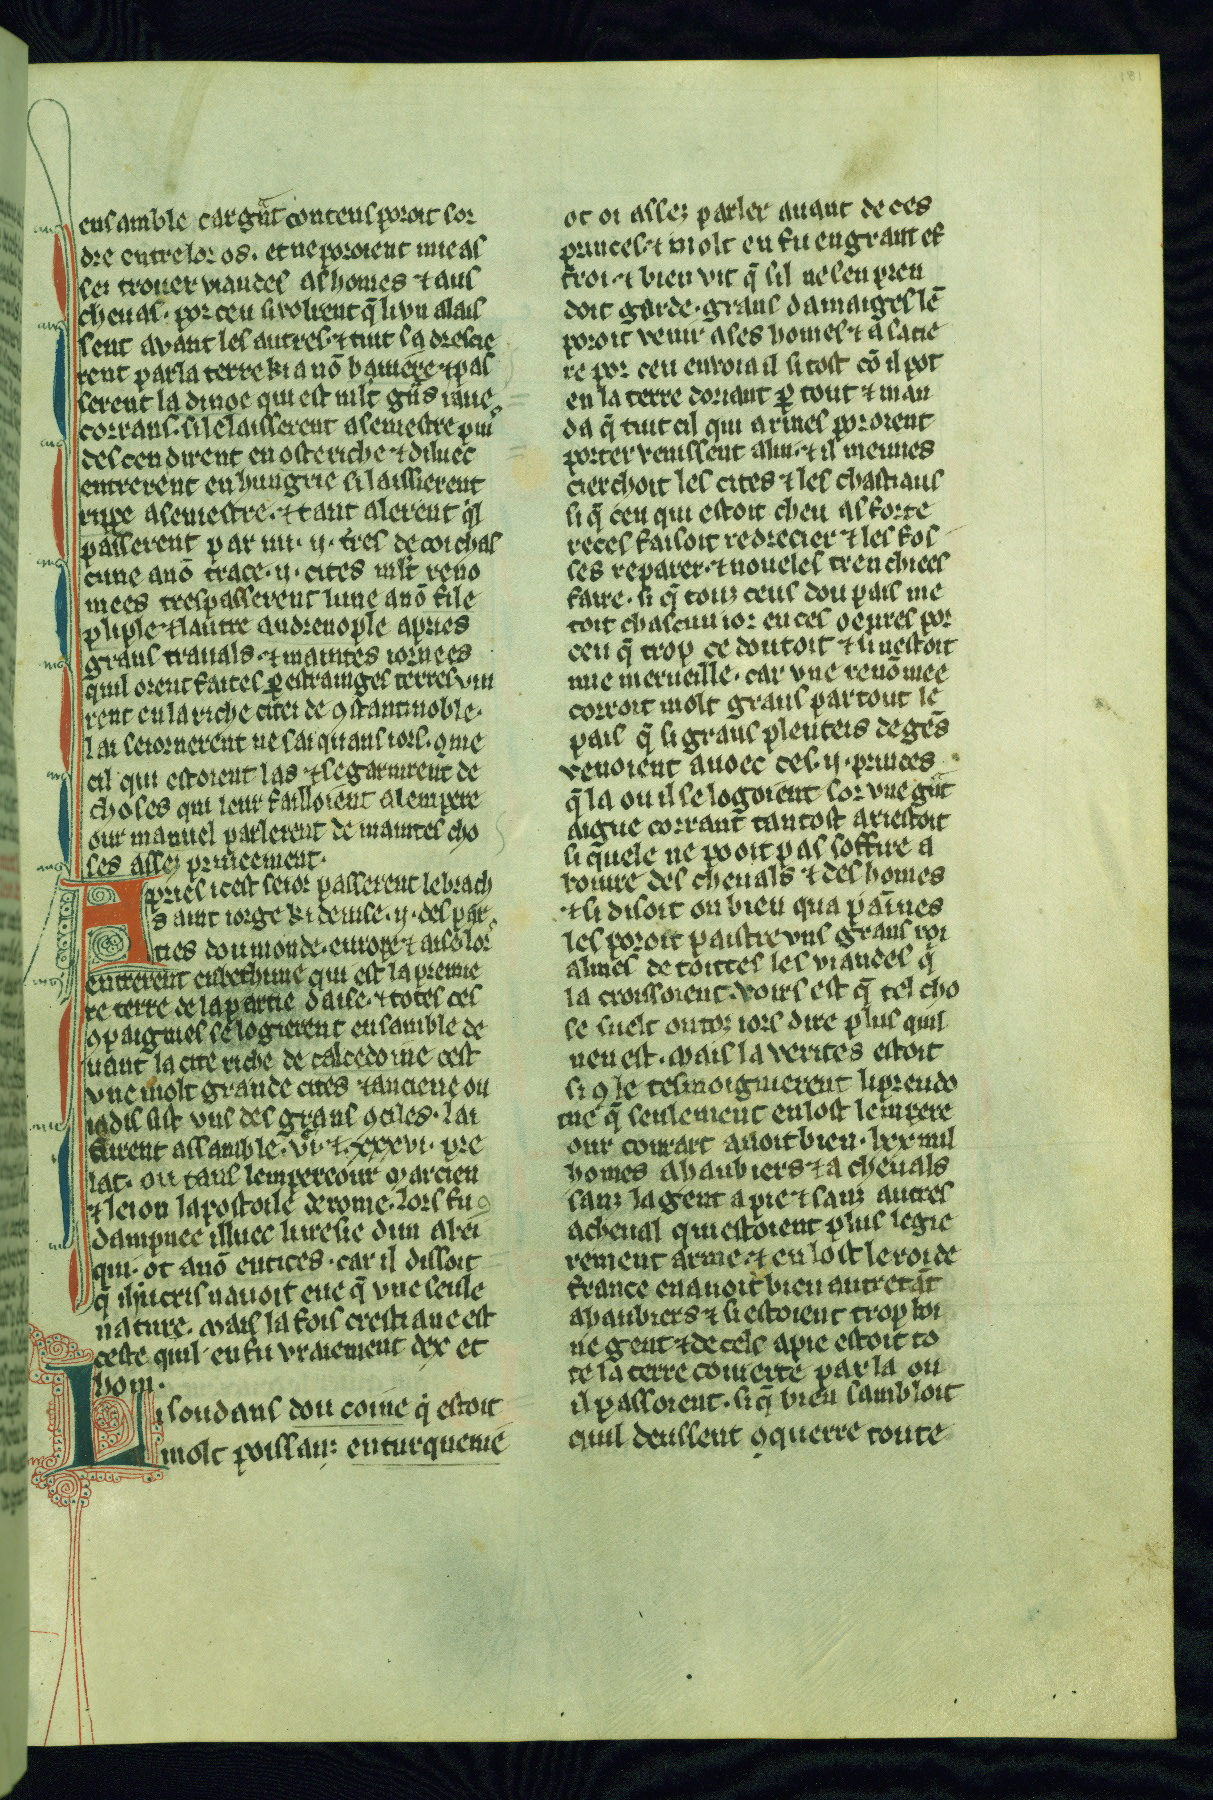 181
ensamble car gñt contens poroit sor
dre entre lor os. et ne poroient mie as
sei trouer viandes as homes ⁊ aus
cheuas. por ceu si volrent q̃ li vn alais
sent auant les autres. ⁊ tuit sadrescie
rent par la terre ki a nõ baiuiere ⁊ pas
serent la dinoe qui est mlt gñs iaue
corrans. si le laisserent a semestre puis
descendirent en osteriche ⁊ diluec
entrerent en hungrie si laissierent
riuue a semestre. ⁊ tant alerent q̃l
passerent par mi .ij. tres de coi chas
cune a nõ trace. ij. cites mlt reno
mees trespasserent lune a nõ file
pliple ⁊ lautre andrenople apries
grans trauals. ⁊ maintes iornees
quil orent faites ꝑ estrainges terres vin
rent en la riche citei de ꝯstantinoble.
lai seiornerent ne sai quans iors. ꝯme
cil qui estoient las ⁊ se garnirent de
choses qui leur failloient a lempere
our manuel parlerent de maintes cho
ses assez priueement.
Apries icest seior passerent le brach
saint iorge ki deuise .ij. des par
ties dou monde. europe ⁊ aise lor
entrerent en bethune qui est la premie
re terre de la partie daise. ⁊ totes ces
ꝯpaignies se logierent ensamble de
uant la cite riche de calcedoine cest
vne molt grande cites ⁊ anciene ou
iadis sist vns des grans ꝯciles. lai
furent assamble .vi. ⁊ .xxxvi. pre
lat. ou tans lempereour marcien
⁊ leion lapostoile de rome. lors fu
dampnee illuec liresie dun abei
qui. ot a nõ eutices. car il dissoit
q̃ ihucris nauoit eue q̃ vne seule
nature. mais la fois crestiane est
ceste quil en fu vraiement dex et
hom.
Li soudans dou coine q̃ estoit
molt poissanz en turquemie
ot oi assez parler auant de ces
princes. ⁊ molt en fu en grant ef
froi. ⁊ bien vit q̃ sil ne sen pren
doit garde. grans damaiges lẽ
poroit venir a ses homes ⁊ a sa tie
re por ceu enuoia il si tost cõ il pot
en la terre doriant ꝑ tout ⁊ man
da q̃ tuit cil qui armes pororent
porter venissent a lui. ⁊ il meimes
cierchoit les cites ⁊ les chastiaus
si q̃ ceu qui estoit cheu as forte
reces faisoit redrecier ⁊ les fos
ses reparer. ⁊ noueles trenchiees
faire. si q̃ touz ceus dou pais me
toit chascun ior en ces oeures por
ceu q̃ trop ce doutoit ⁊ si nestoit
mie merueille. car vne renõmee
corroit molt grans par tout le
pais q̃ si grans plenteis de gẽs
venoient auoec ces .ij. princes
q̃ la ou il se logoient sor vne gñt
aigue corrant tantost ariestoit
si quele ne pooit pas soffire a
boiure des cheuals ⁊ des homes
⁊ si disoit on bien qua paĩnes
les poroit paistre vns grans roi
almes de toutes les viandes q̃
la croissoient. voirs est q̃ tel cho
se suelt on toz iors dire plus quil
nen est. mais la verites estoit
si ꝯ le tesmoignierent li preudo
me q̃ seulement en lost lempere
our conrart auoit bien. lxx mil
homes a haubiers ⁊ a cheuals
sanz la gent a pie ⁊ sanz autres
a cheual qui estoient plus legie
rement arme. ⁊ en lost le roi de
france en auoit bien autretãt
a haubiers ⁊ si estoient trop boi
ne gent ⁊ de cels a pie estoit to
te la terre couuerte par la ou
il passoient. si q̃ bien sambloit
quil deussent ꝯquerre toute